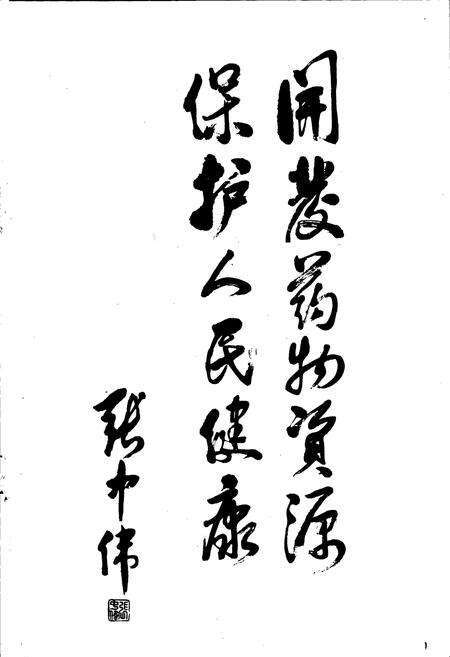 開發药物資源
保护人民健康
张中伟